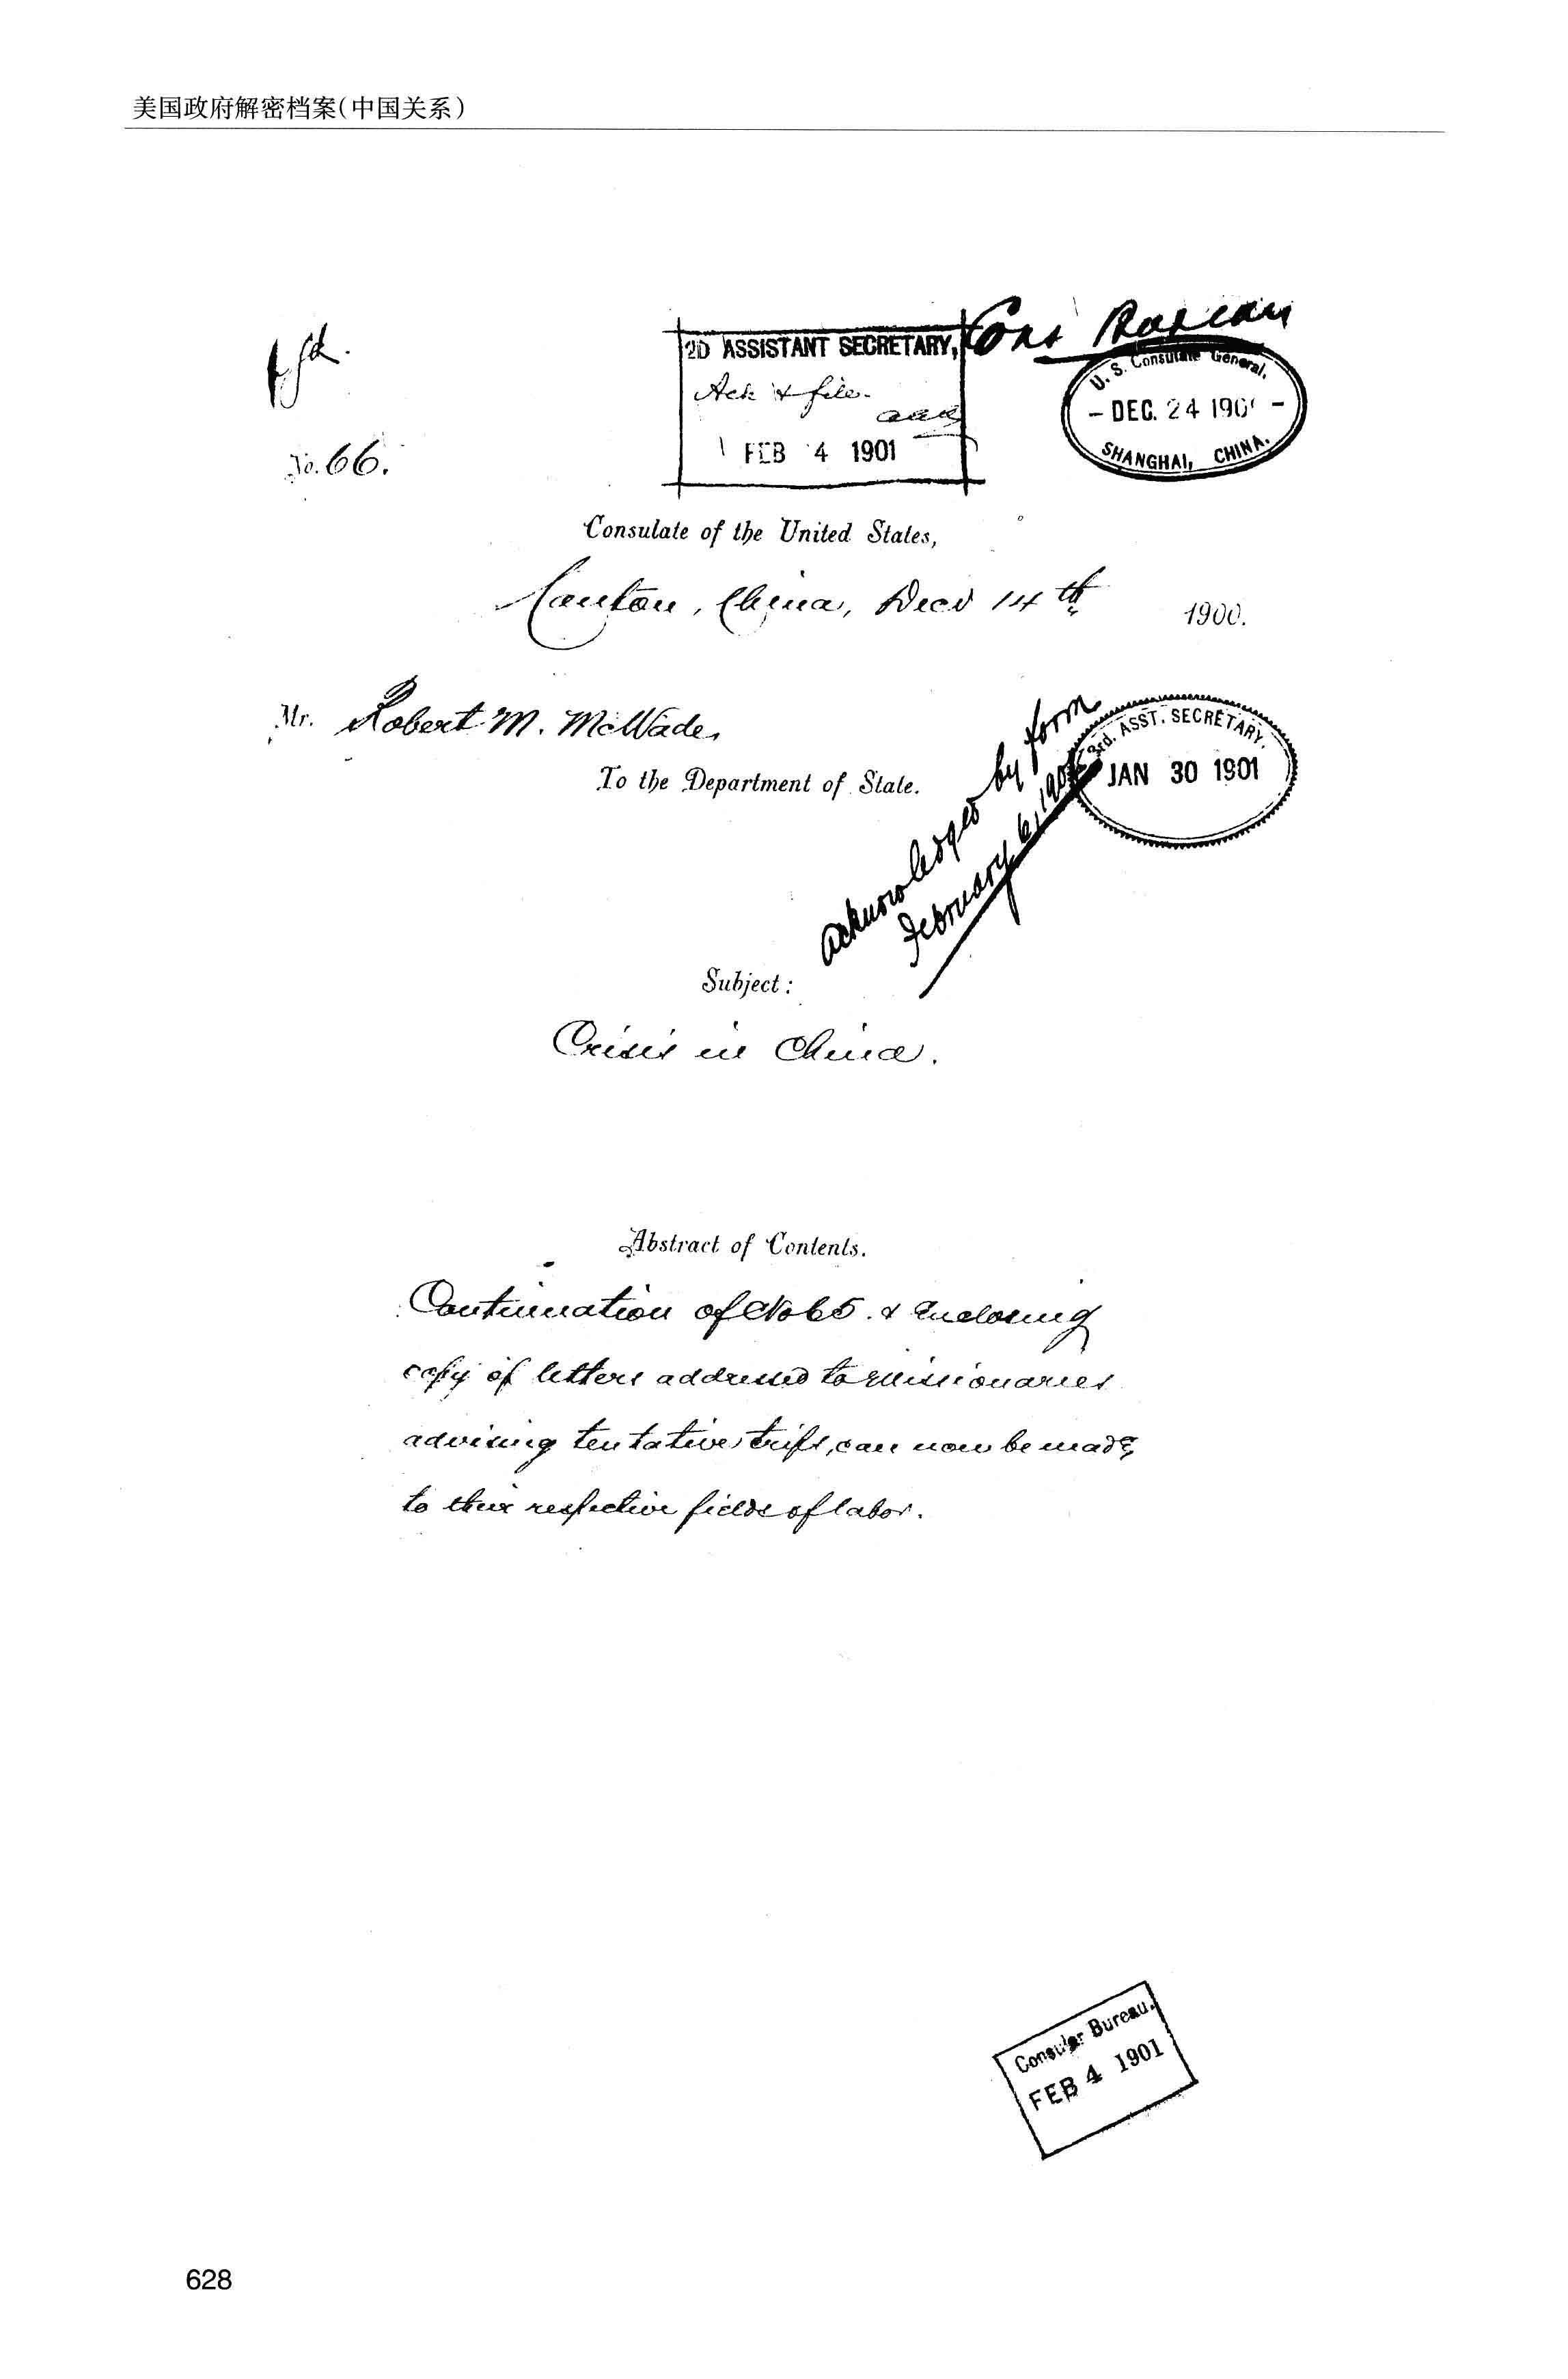 美国政府解密档案(中国关系)
Cons Bureau
2D ASSISTANT SECRETARY,
Ack & file.
aaa
FEB 4 1901
U. S. Consulate General,
- DEC. 24 190 -
SHANGHAI, CHINA.
No. 66.
Consulate of the United States,
Canton, China, Decr 14th 1900.
Mr. Robert M. McWade,
To the Department of State.
3rd. ASST. SECRETARY.
JAN 30 1901
acknowledged by form
February 6, 1901
Subject:
Crisis in China.
Abstract of Contents.
Continuation of No 65. & Enclosing
copy of letters addressed to missionaries
advising tentative trips, can now be made,
to their respective fields of labor.
Consular Bureau.
FEB 4 1901
628